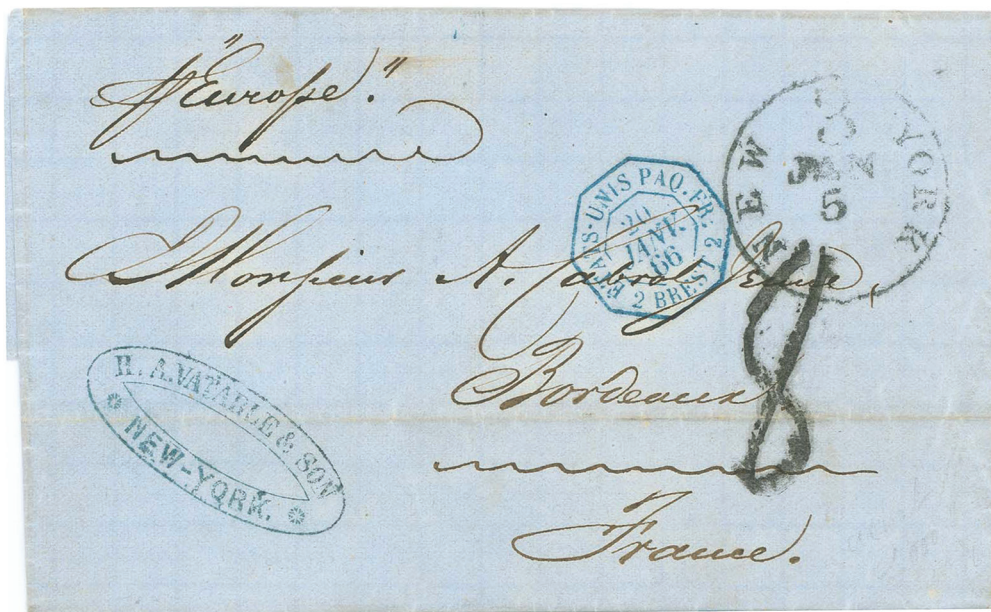 "Europe."
NEW YORK
3
JAN
5
ETATS-UNIS PAQ. FR. 2 BREST 2
20
JANV.
66
Monsieur A. Cabrol Jeune,
Bordeaux
8
France.
H. A. VATABLE & SON
NEW-YORK.